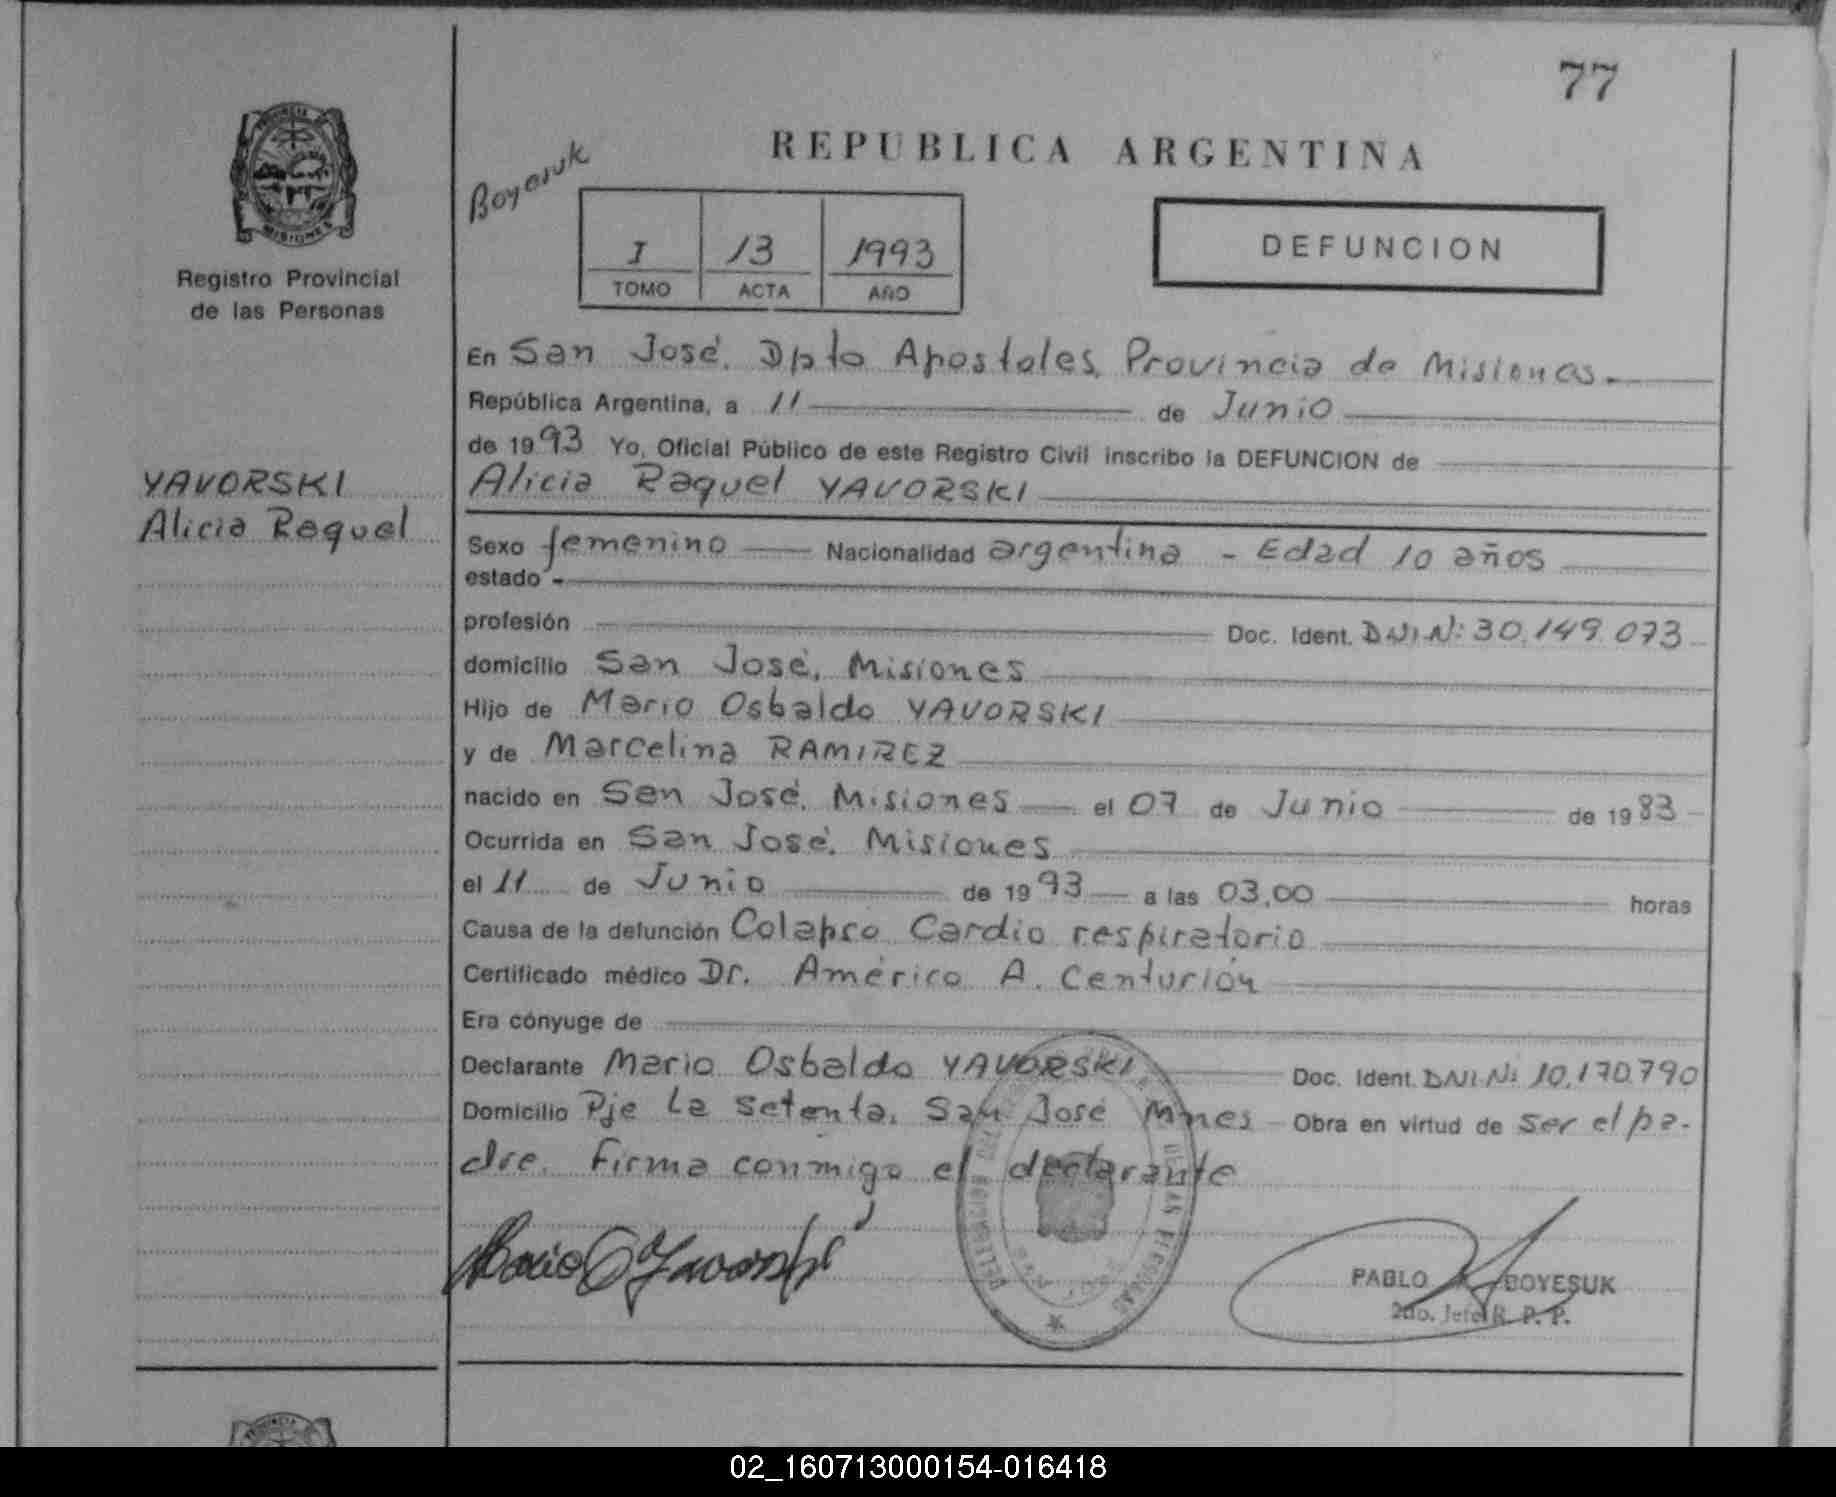 77
PROVINCIA DE
MISIONES
Registro Provincial
de las Personas
Boyesuk
REPUBLICA ARGENTINA
I 13 1993
TOMO ACTA AÑO
DEFUNCION
En San José, Dpto Apostoles, Provincia de Misiones.
República Argentina, a 11 de Junio
de 1993 Yo, Oficial Público de este Registro Civil inscribo la DEFUNCION de
YAVORSKI
Alicia Raquel
Alicia Raquel YAVORSKI
Sexo femenino Nacionalidad argentina - Edad 10 años
estado -
profesión Doc. Ident. DNI.Nº 30.149.073
domicilio San José, Misiones
Hijo de Mario Osbaldo YAVORSKI
y de Marcelina RAMIREZ
nacido en San José, Misiones el 07 de Junio de 1983
Ocurrida en San José, Misiones
el 11 de Junio de 1993 a las 03,00 horas
Causa de la defunción Colapso Cardio respiratorio
Certificado médico Dr. Américo A. Centurión
Era cónyuge de
Declarante Mario Osbaldo YAVORSKI Doc. Ident. DNI.Nº 10.170.790
Domicilio Pje La Setenta, San José Mnes - Obra en virtud de ser el pa-
dre. Firma conmigo el declarante
Mario O Yavorski
PABLO BOYESUK
2do. Jefe R. P. P.
02_160713000154-016418